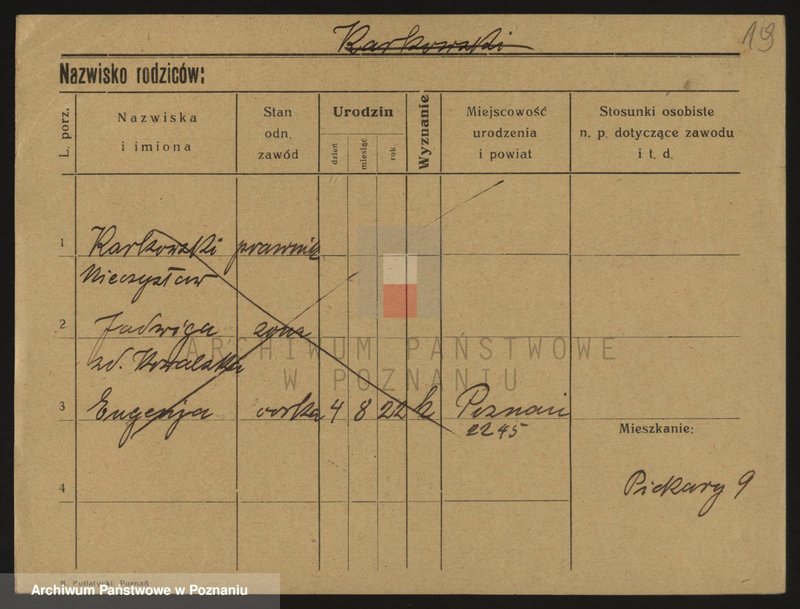 Karkowski
19
Nazwisko rodziców:
L. porz.
Nazwiska
i imiona
Stan
odn.
zawód
Urodzin
dzień
miesiąc
rok
Wyznanie
Miejscowość
urodzenia
i powiat
Stosunki osobiste
n. p. dotyczące zawodu
i t. d.
1 Karkowski prawnik
Mieczysław
2 Jadwiga żona
zd. Kowalska
3 Eugenja córka 4 8 22 k Poznań
2245
4
Mieszkanie:
Piekary 9
ARCHIWUM PAŃSTWOWE
W POZNANIU
M. Putiatycki, Poznań
Archiwum Państwowe w Poznaniu